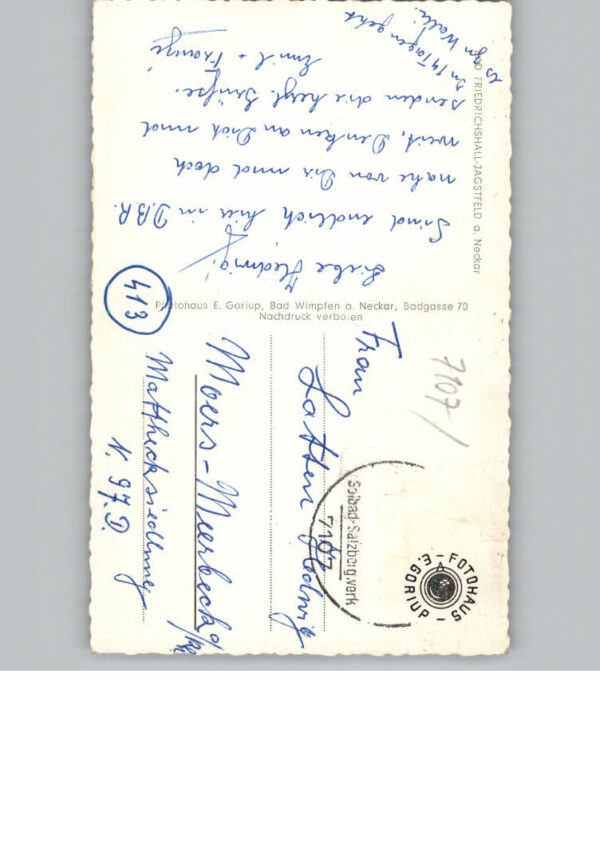 BAD FRIEDRICHSHALL-JAGSTFELD a. Neckar
Liebe Hedwig!
Sind endlich hier in D.B.R.
nahe von Dir und doch
weit, Denken an Dich und
senden dir herzl. Grüße.
Emil + Franzi
In 14 Tagen geht
es gen
Photohaus E. Goriup, Bad Wimpfen a. Neckar, Badgasse 70
Nachdruck verboten
413
7107/
Frau
Latten Hedwig
Moers-Meerbeck
Matthecksiedlung
N. 97.D.
7107
Solbad-Salzbergwerk
FOTOHAUS
E. GORIUP